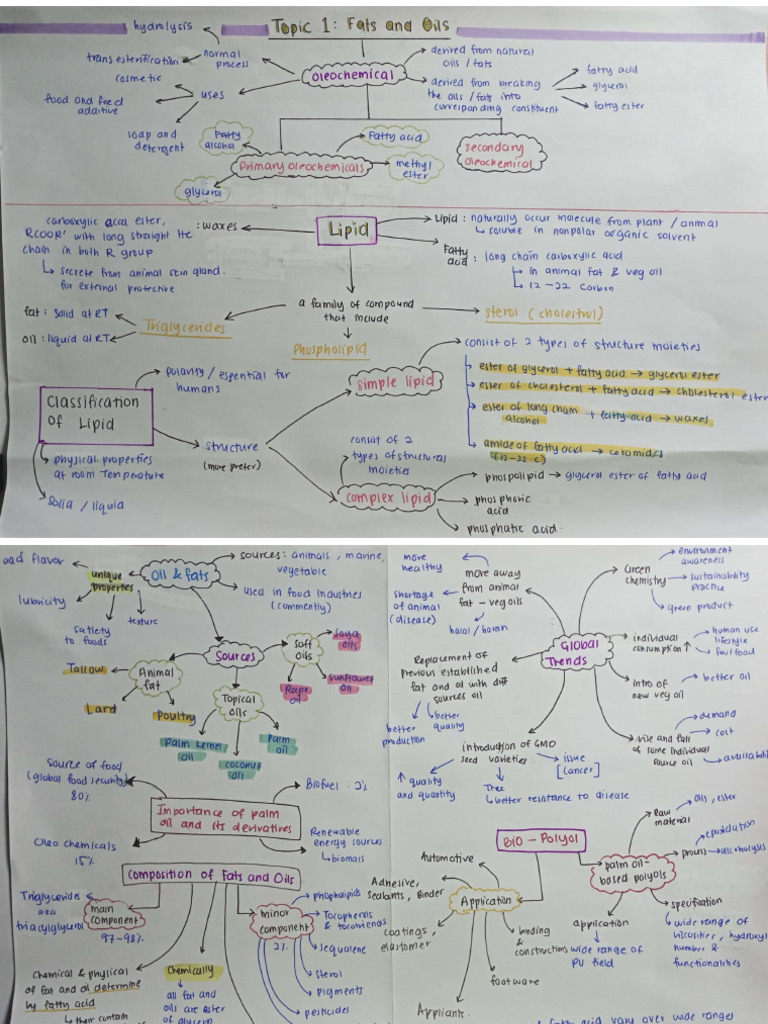 Topic 1: Fats and Oils
hydrolysis
transesterification
normal
process
cosmetic
food and feed
additive
uses
soap and
detergent
oleochemical
derived from natural
oils / fats
derived from breaking
the oils / fats into
corresponding constituent
fatty acid
glycerol
fatty ester
Primary oleochemicals
Fatty
alcohol
Fatty acid
methyl
ester
glycerol
secondary
oleochemical
Lipid
carboxylic acid ester,
RCOOR' with long straight HC
chain in both R group
: waxes
↳ secrete from animal skin gland
for external protective
Lipid : naturally occur molecule from plant / animal
↳ soluble in nonpolar organic solvent
Fatty
acid : long chain carboxylic acid
↳ in animal fat & veg oil
↳ 12-22 carbon
a family of compound
that include
fat : solid at RT
oil : liquid at RT
Triglycerides
Phospholipid
sterol (cholestrol)
Classification
of Lipid
polarity / espential for
humans
physical properties
at room Temperature
solid / liquid
structure
(more prefer)
simple lipid
consist of 2 types of structure moieties
ester of glycerol + fatty acid → glycerol ester
ester of cholesterol + fatty acid → cholesterol ester
ester of long chain
alcohol + fatty acid → waxes
amide of fatty acid → ceramides
(12-22 c)
complex lipid
consist of 2
types of structural
moieties
phospolipid → glycerol ester of fatty acid
phosphoric
acid
phosphatic acid.
Oil & fats
aad flavor
unique
properties
lubricity
satiety
to foods
texture
sources : animals, marine,
vegetable
used in food industries
(commently)
Sources
Animal
fat
Tallow
Lard
Poultry
Topical
oils
Palm kernel
oil
coconut
oil
Palm
oil
Soft
oils
Soya
oils
sunflower
oil
Rape
oil
Importance of palm
oil and its derivatives
Source of food
(global food security)
80%
Oleo chemicals
15%
Biofuel : 2%
Renewable
energy sources
↳ biomass
Composition of Fats and Oils
Triglycerides
aka
triacylglycerol
main
component
97-98%
minor
component
2%
phopholipids
Tocopherols &
tocotrienols
squalene
sterol
pigments
pesticides
Chemical & physical
of fat and oil determine
by fatty acid
↳ their contain
Chemically
↳ all fat and
oils are ester
of glycern
Global
Trends
more
healthy
shortage
of animal
(disease)
halal / haram
more away
from animal
fat - veg oils
Replacement of
previous established
fat and oil with diff
sources oil
better
production
better
quality
introduction of GMO
seed varieties
↑ quality
and quantity
Tree
↳ better resistance to disease
issue
[cancer]
Green
chemistry
environment
awareness
sustainability
practice
green product
individual
consumption ↑
human use
lifestyle
faulfood
intro of
new veg oil
better oil
rise and fall
of some individual
source oil
demand
cost
availabili
Bio - Polyol
Application
Automotive
Adhesive,
sealants, Binder
coatings,
elastomer
Appliants.
footware
binding &
constructions
palm oil-
based polyols
Raw
material
oils, ester
process
epoxidation
alcoholysis
specification
↳ wide range of
viscosities, hydroxyl
number &
functionalities
application
wide range of
PU field
fatty acid vary over wide ranges